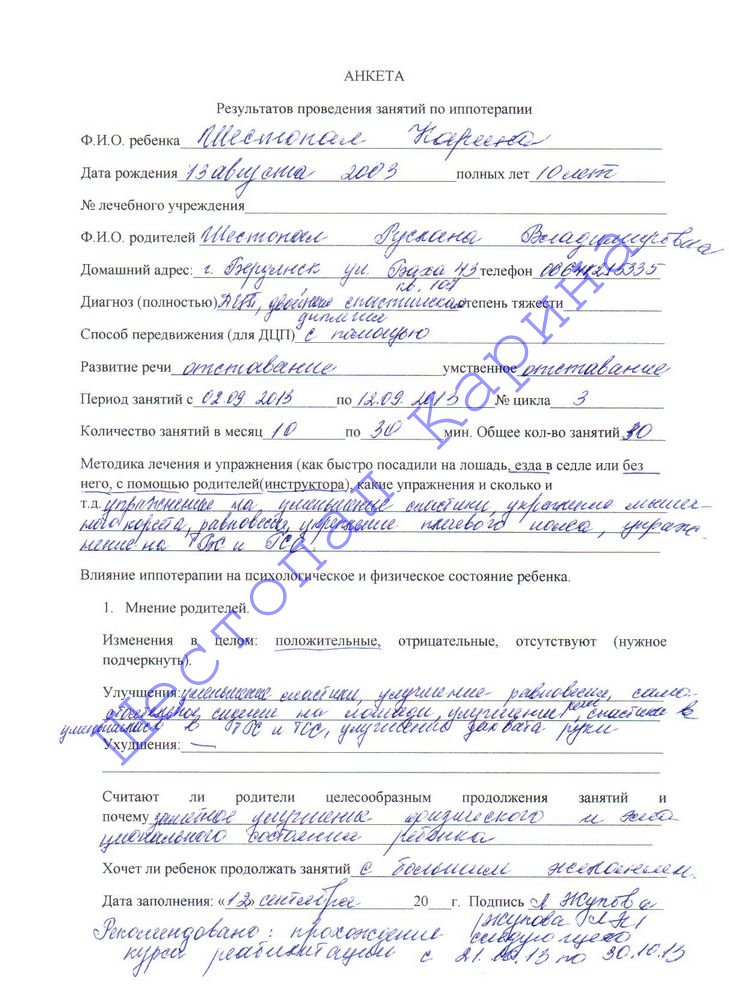 АНКЕТА
Результатов проведения занятий по иппотерапии
Ф.И.О. ребенка Шестопал Карина
Дата рождения 13 августа 2003 полных лет 10 лет
№ лечебного учреждения
Ф.И.О. родителей Шестопал Руслана Владимировна
Домашний адрес: г. Бердянск ул. Баха 43 телефон
кв. 107
Диагноз (полностью) ДЦП, двойная спастическая степень тяжести
диплегия
Способ передвижения (для ДЦП) с помощью
Развитие речи отставание умственное отставание
Период занятий с 02.09 2013 по 12.09. 2013 № цикла 3
Количество занятий в месяц 10 по 30 мин. Общее кол-во занятий 30
Методика лечения и упражнения (как быстро посадили на лошадь, езда в седле или без
него, с помощью родителей(инструктора), какие упражнения и сколько и
т.д. упражнение на уменьшение спастики, укрепление мышеч-
ного корсета, равновесия, укрепление плечевого пояса, упраж-
нение на ТБС и ГСС.
Влияние иппотерапии на психологическое и физическое состояние ребенка.
1. Мнение родителей.
Изменения в целом: положительные, отрицательные, отсутствуют (нужное
подчеркнуть).
Улучшения: уменьшение спастики, улучшение равновесия, само-
стоятельное сидение на лошади, улучшение речи, спастика в
уменьшилась в ТБС и ГСС, улучшение захвата руки
Ухудшения: —
Считают ли родители целесообразным продолжения занятий и
почему заметное улучшение физического и эмо-
ционального состояния ребёнка
Хочет ли ребенок продолжать занятий с большим желанием.
Дата заполнения: «12» сентября 20 г. Подпись Л Жупова
/Жупова
Рекомендовано: прохождение следующего
курса реабилитации с 21.10.13 по 30.10.13
Шестопал Карина